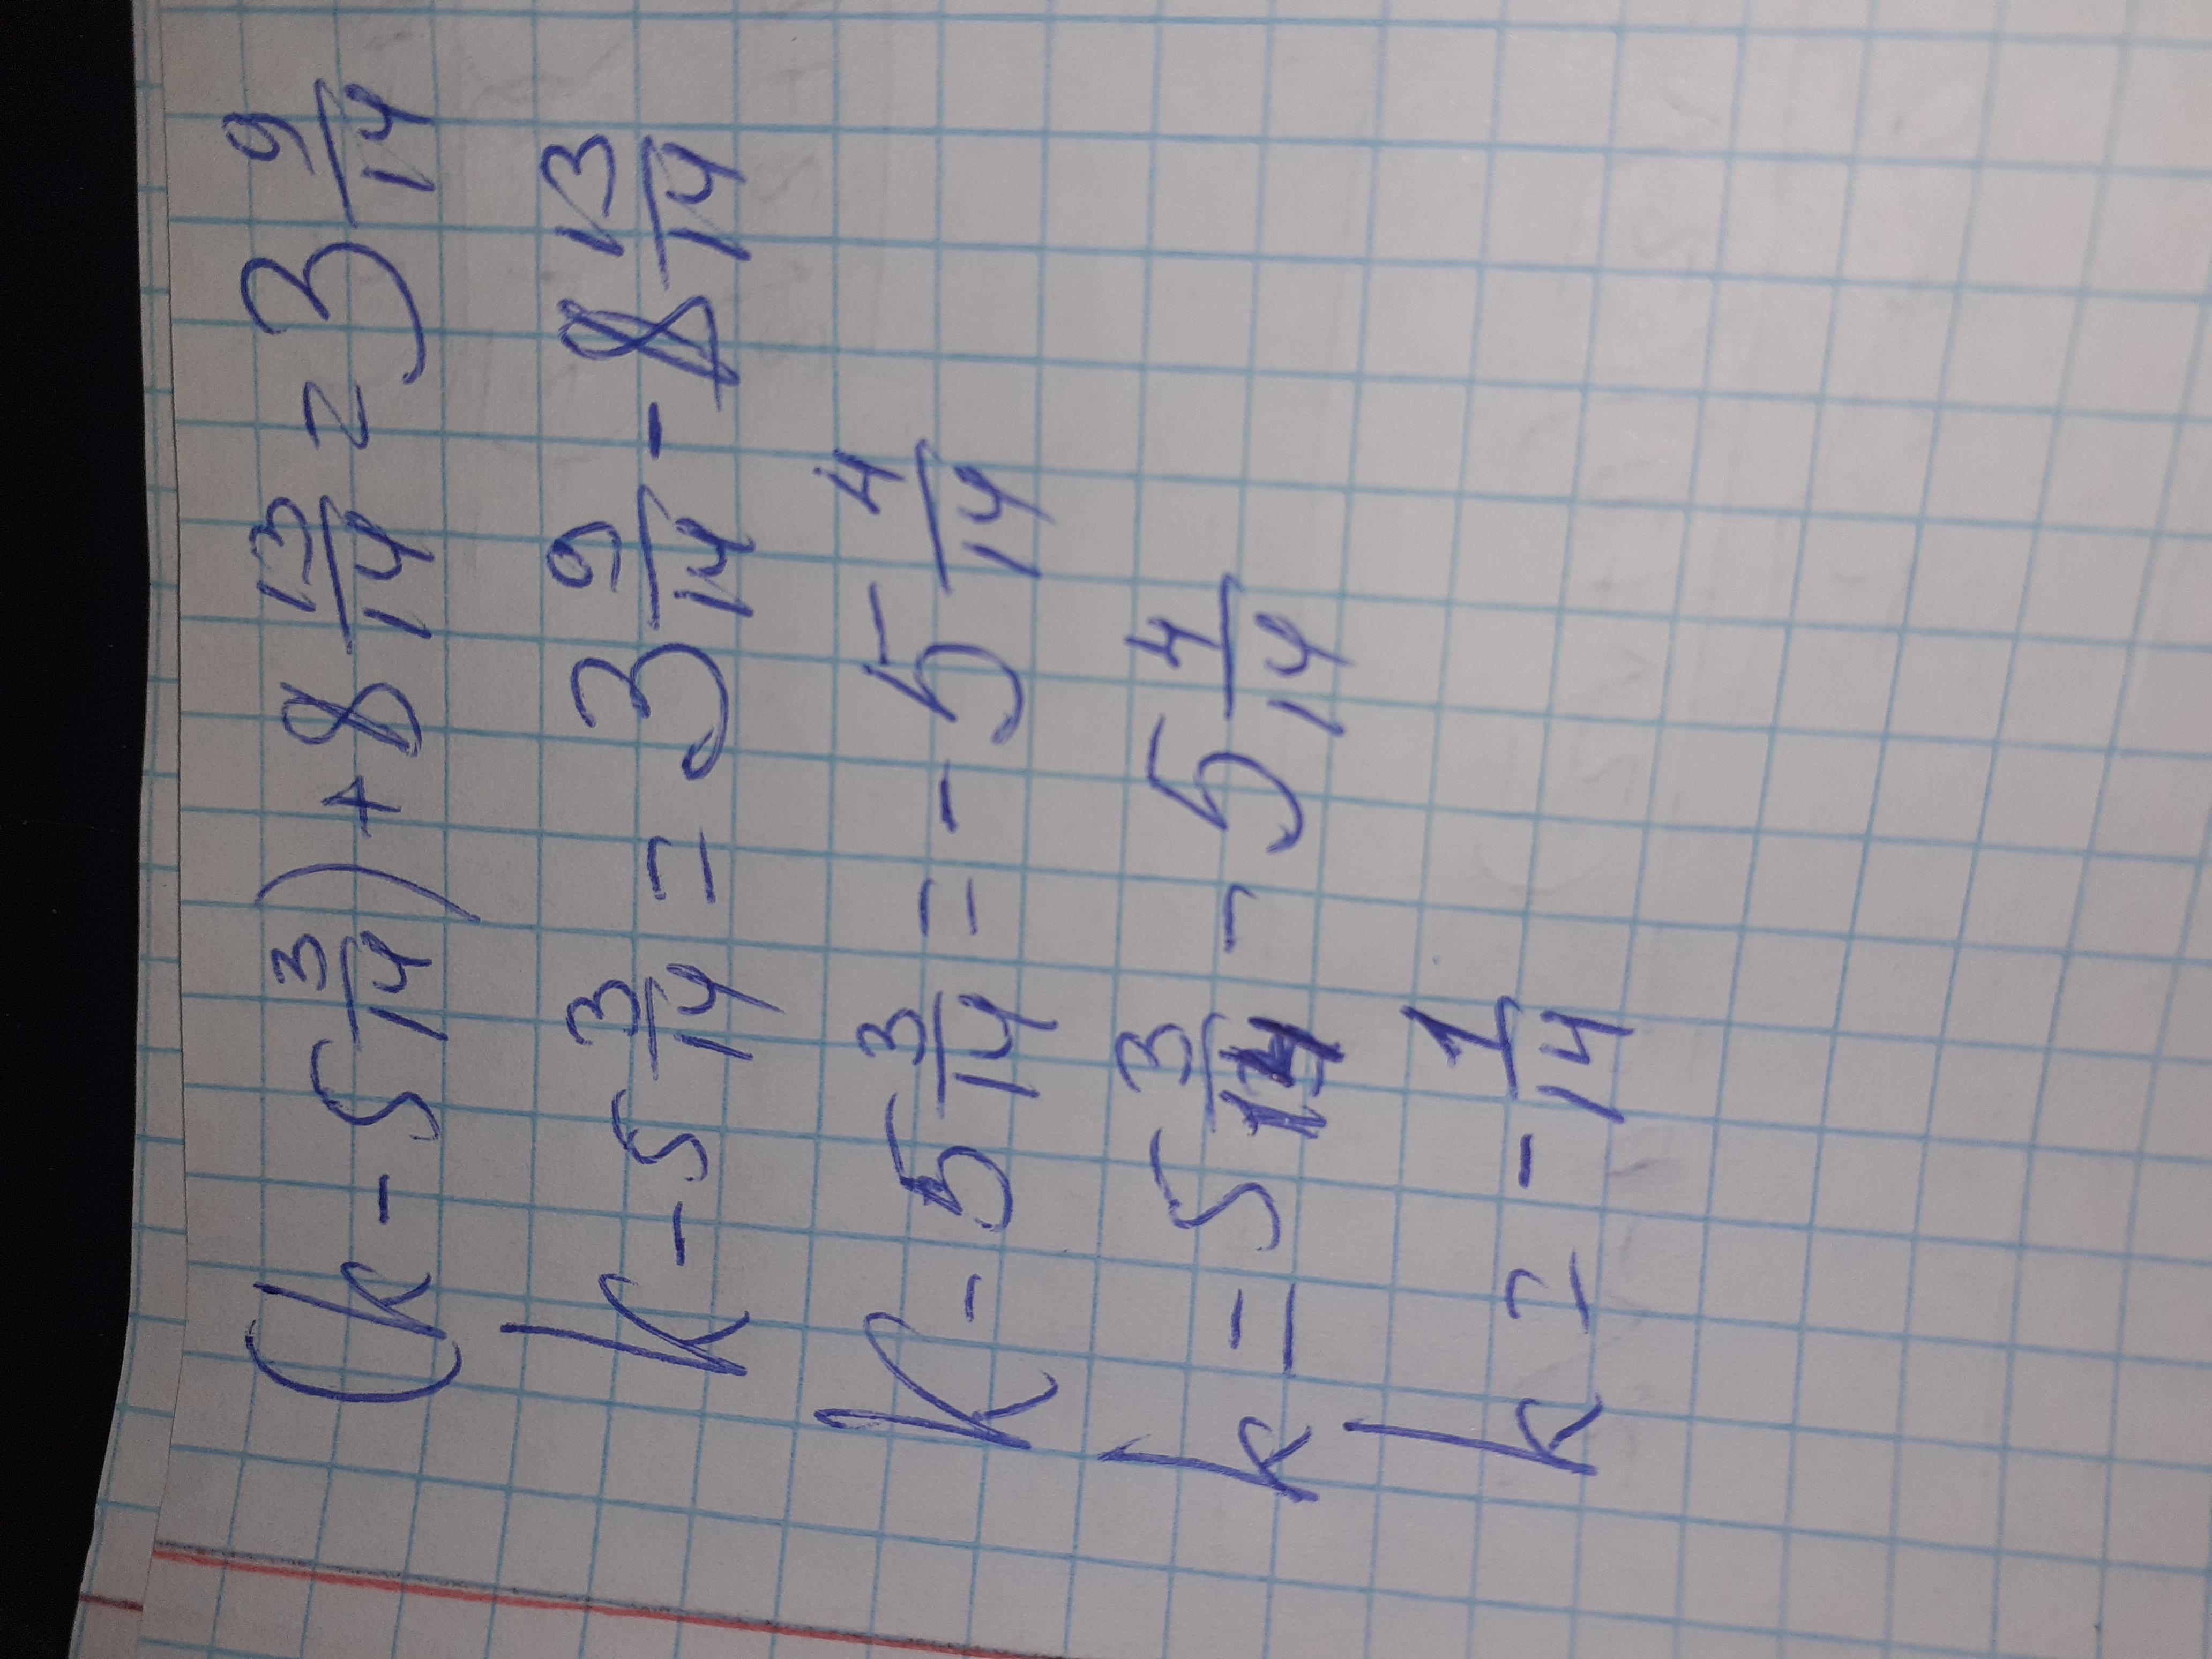 (k - 5 3/14) + 8 13/14 = 3 9/14
k - 5 3/14 = 3 9/14 - 8 13/14
k - 5 3/14 = - 5 4/14
k = 5 3/14 - 5 4/14
k = - 1/14